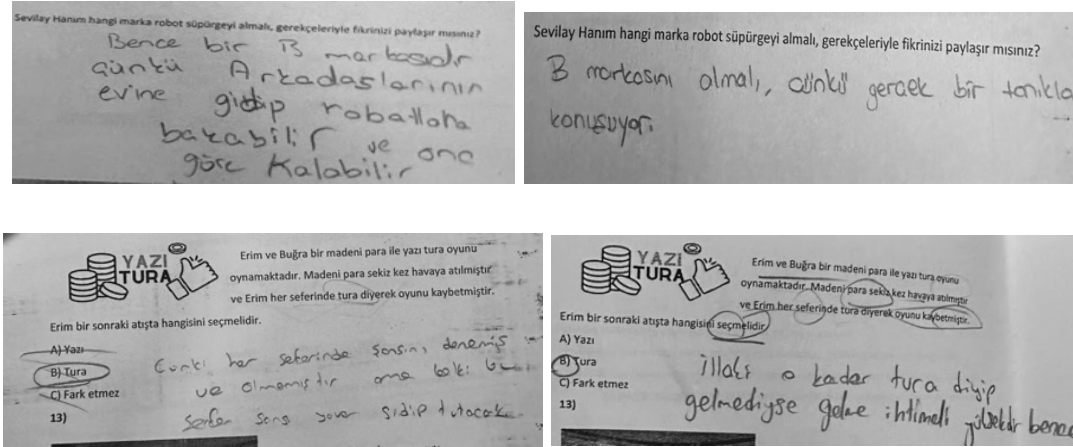 Sevilay Hanım hangi marka robot süpürgeyi almalı, gerekçeleriyle fikrinizi paylaşır mısınız?
Bence bir B markasıdır
çünkü Arkadaşlarının
evine gidip robatlaha
bakabilir ve ona
göre Kalabilir
Sevilay Hanım hangi marka robot süpürgeyi almalı, gerekçeleriyle fikrinizi paylaşır mısınız?
B markasını almalı, çünkü gerçek bir tanıkla
konuşuyor.
YAZI
TURA
Erim ve Buğra bir madeni para ile yazı tura oyunu
oynamaktadır. Madeni para sekiz kez havaya atılmıştır
ve Erim her seferinde tura diyerek oyunu kaybetmiştir.
Erim bir sonraki atışta hangisini seçmelidir.
A) Yazı
B) Tura
C) Fark etmez
13)
Çünkü her seferinde şansını denemiş
ve olmamıştır ama belki
sefer şans yaver gidip tutacak
YAZI
TURA
Erim ve Buğra bir madeni para ile yazı tura oyunu
oynamaktadır. Madeni para sekiz kez havaya atılmıştır
ve Erim her seferinde tura diyerek oyunu kaybetmiştir.
Erim bir sonraki atışta hangisini seçmelidir.
A) Yazı
B) Tura
C) Fark etmez
13)
illaki o kadar tura diyip
gelmediyse gelme ihtimali yüksektir bence